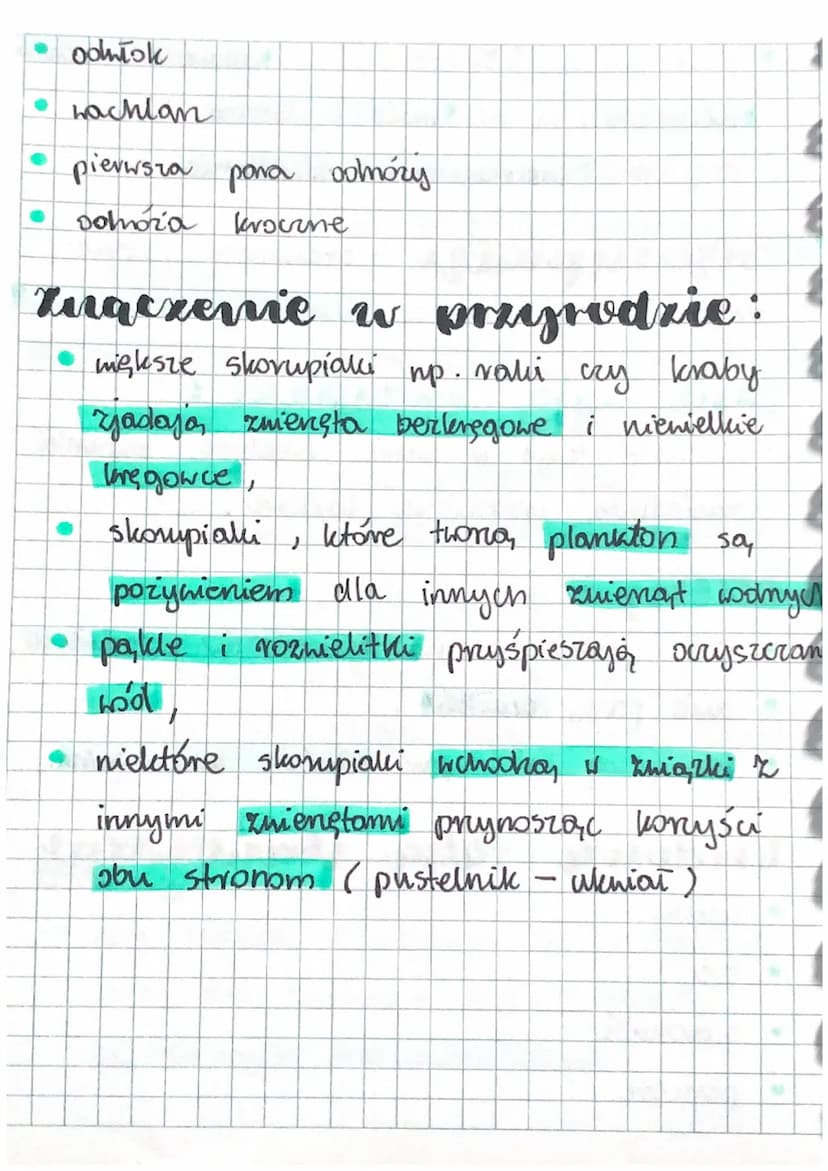 odwłok
wachlarz
pierwsza para odnóży
odnóża kroczne
znaczenie w przyrodzie:
większe skorupiaki np. raki czy kraby
zjadają zwierzęta bezkręgowe i niewielkie
kręgowce,
skorupiaki, które tworzą plankton są
pożywieniem dla innych zwierząt wodnych
pąkle i rozwielitki przyśpieszają oczyszczan
wód,
niektóre skorupiaki wchodzą w związki z
innymi zwierzętami przynosząc korzyści
obu stronom (pustelnik - ukwiał)